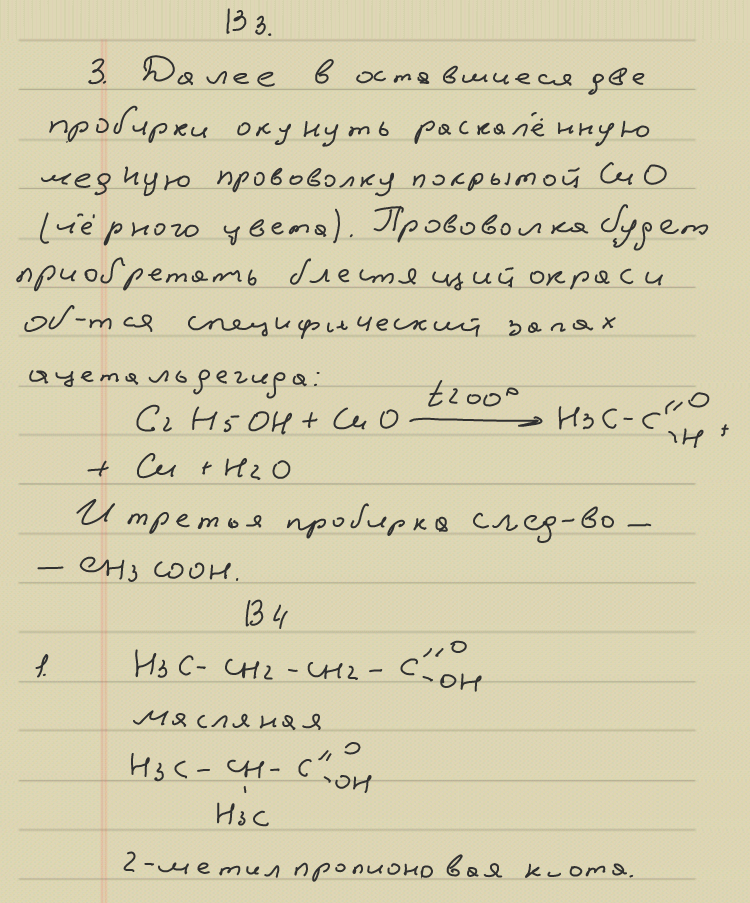 В 3.
3. Далее в оставшиеся две
пробирки окунуть раскалённую
медную проволку покрытой CuO
(чёрного цвета). Проволка будет
приобретать блестящий окрас и
об-тся специфический запах
ацетальдегида:
C2H5OH + CuO t200° → H3C-C=O
H +
+ Cu + H2O
И третья пробирка след-во —
— CH3COOH.
В 4
1. H3C-CH2-CH2-C=O
OH
масляная
H3C-CH-C=O
OH
H3C
2-метилпропионовая к-ота.